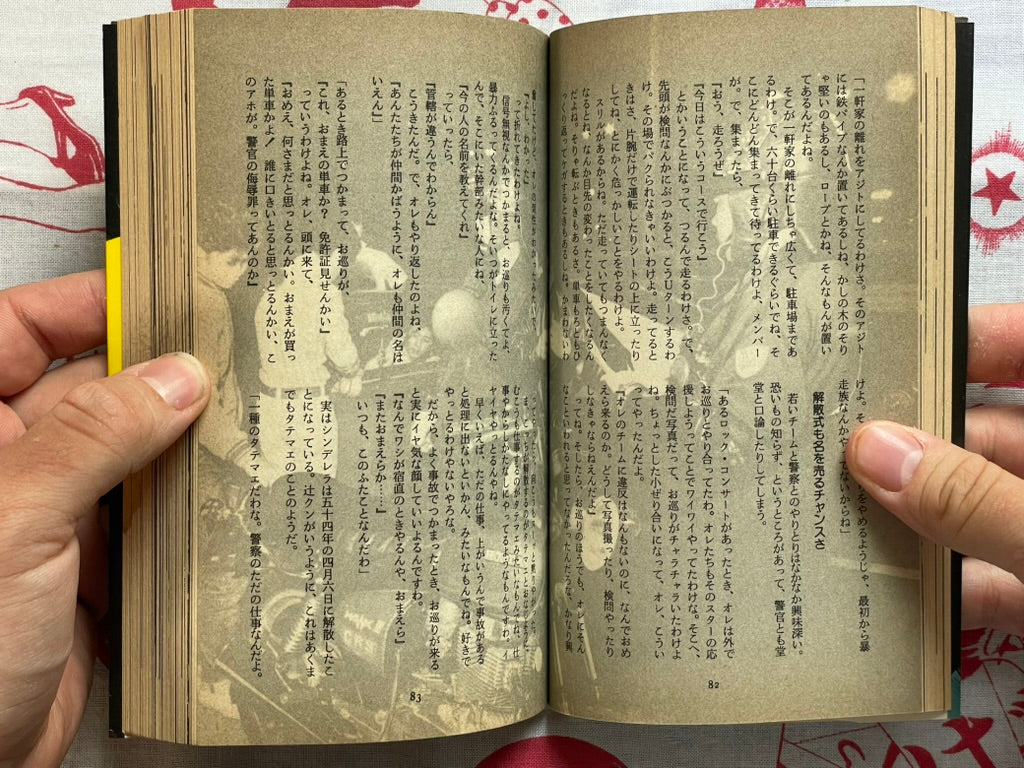 「一軒家の離れをアジトにしてるわけさ。そのアジト
には鉄パイプなんか置いてあるしね、かしの木のそり
ゃ堅いのもあるし、ロープとかね、そんなもんが置い
てあるんだよね。
そこが一軒家の離れにしちゃ広くて、駐車場まであ
るわけ。で、六十台くらい駐車できるぐらいでね、そ
こにどんどん集まってきて待ってるわけよ、メンバー
が。で、集まったら、
『おう、走ろうぜ』
『今日はこういうコースで行こう』
とかいうことになって、つるんで走るわけさ。で、
先頭が検問なんかにぶつかると、こうUターンするわ
け。その場でパクられなきゃいいわけよ。走ってると
きはさ、片腕だけで運転したりシートの上に立ったり
してね、とにかく危っかしいことをやるわけよ。
スリルがあるからね。ただ走っていてもつまんなく
なるわけ。なんか目先の変わったことをしたくなるん
だよね。そりゃ転ぶときもあるさ。単車もろともひ
っくり返ってケガするときもあるしね。かまわないわ
けよ。そ
走族なんかや
をやめるようじゃ、最初から暴
てないからね」
解散式も名を売るチャンスさ
若いチームと警察とのやりとりはなかなか興味深い。
恐いもの知らず、というところがあって、警官とも堂
堂と口論したりしてしまう。
「あるロック・コンサートがあったとき、オレは外で
お巡りとやり合ってたわ。オレたちもそのスターの応
援しようってことでワイワイやってたわけな。そこへ、
検問だ写真だって、お巡りがチャラチャラいたわけよ
ね。ちょっとした小ぜり合いになって、オレ、こうい
ってやったんだよ。
『オレのチームに違反はなんもないのに、なんでおめ
えら来るのか。どうして写真撮ったり、検問やったり
しなきゃならねえんだよ』
ってね。そしたら、お巡りのほうでも、オレにそん
なこといわれると思ってなかったんだろな、かなり興
82
『よし、わかった』
って折れてきたわけよね。
信号無視なんかでつかまると、お巡りも汚くてよ、
暴力ふるってくるんだよな。そいつがトイレに立った
んで、そこにいた幹部みたいな人にね、
『今の人の名前を教えてくれ』
っていったら、
『管轄が違うんでわからん』
こうきたんだ。で、オレもやり返したのよね、
『あんたたちが仲間かばうように、オレも仲間の名は
いえん』」
「あるとき路上でつかまって、お巡りが、
『これ、おまえの単車か? 免許証見せんかい』
っていうわけよね。オレ、頭に来て、
『おめえ、何さまだと思っとるんかい。おまえが買っ
た単車かよ! 誰に口きいとると思っとるんかい、こ
のアホが。警官の侮辱罪ってあんのか』
むこうも仕事するのがタテマエみたいなもんでね、仕
事やからしかたなしにやってるようなもんですわ。イ
ヤイヤやっとるんやね。
早くいえば、ただの仕事、上がいうんで事故がある
と処理に出ないといかん、みたいなもんでね。好きで
やっとるわけやないやろな。
だから、よく事故でつかまったとき、お巡りが来る
と実にイヤ気な顔していいよるんですわ。
『なんでワシが宿直のときやるんや、おまえら』
『またおまえらか……』
いっつも、このふたことなんだわ」
実はシンデレラは五十四年の四月六日に解散したこ
とになっている。辻クンがいうように、これはあくま
でもタテマエのことのようだ。
「一種のタタマエだわな。警察のただの仕事なんだよ。
83